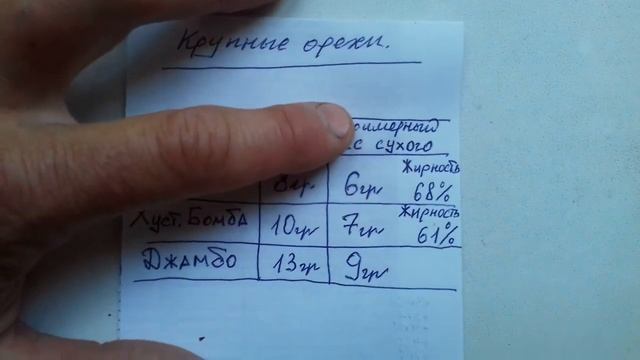 Крупные орехи.
примерный
вес сухого
8гр 6гр Жирность 68%
Хуст. Бомба 10гр 7гр Жирность 61%
Джамбо 13гр 9гр